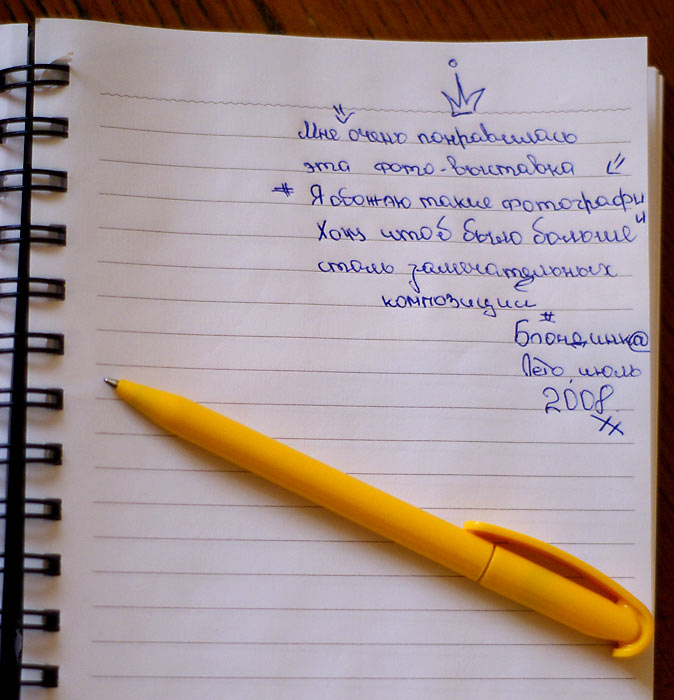 Мне очень понравилась
эта фото-выставка
# Я обожаю такие фотографи
и
Хочу чтоб было больше
столь замечательных
композиций
#
Блондинк@
Лето, июль
2008